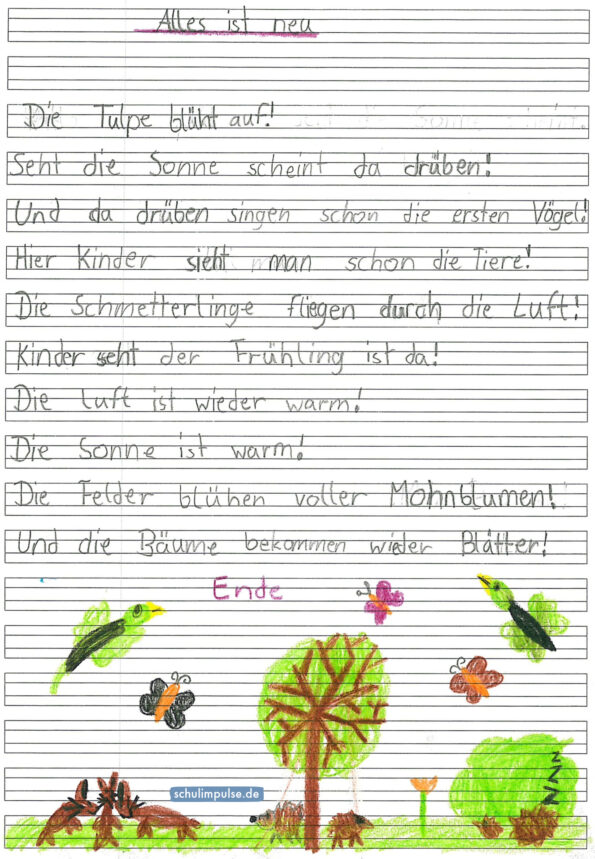 Alles ist neu
Die Tulpe blüht auf!
Seht die Sonne scheint da drüben!
Und da drüben singen schon die ersten Vögel!
Hier Kinder sieht man schon die Tiere!
Die Schmetterlinge fliegen durch die Luft!
Kinder seht der Frühling ist da!
Die Luft ist wieder warm!
Die Sonne ist warm!
Die Felder blühen voller Mohnblumen!
Und die Bäume bekommen wieder Blätter!
Ende
schulimpulse.de
ZZZ